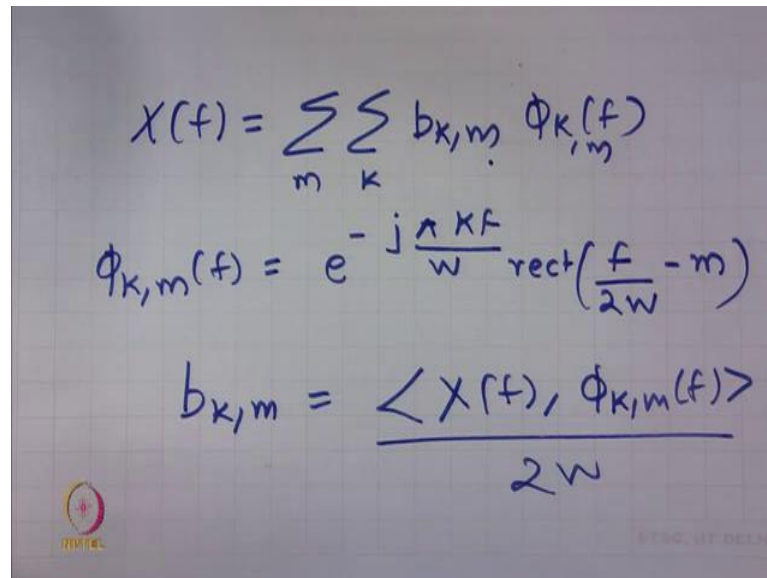 X(f) = Σ Σ b_{k,m} Φ_{k,m}(f)
m k
Φ_{k,m}(f) = e^{-j πkf/W} rect(f/2W - m)
b_{k,m} = <X(f), Φ_{k,m}(f)> / 2W
NPTEL
ETSC, IIT DELHI